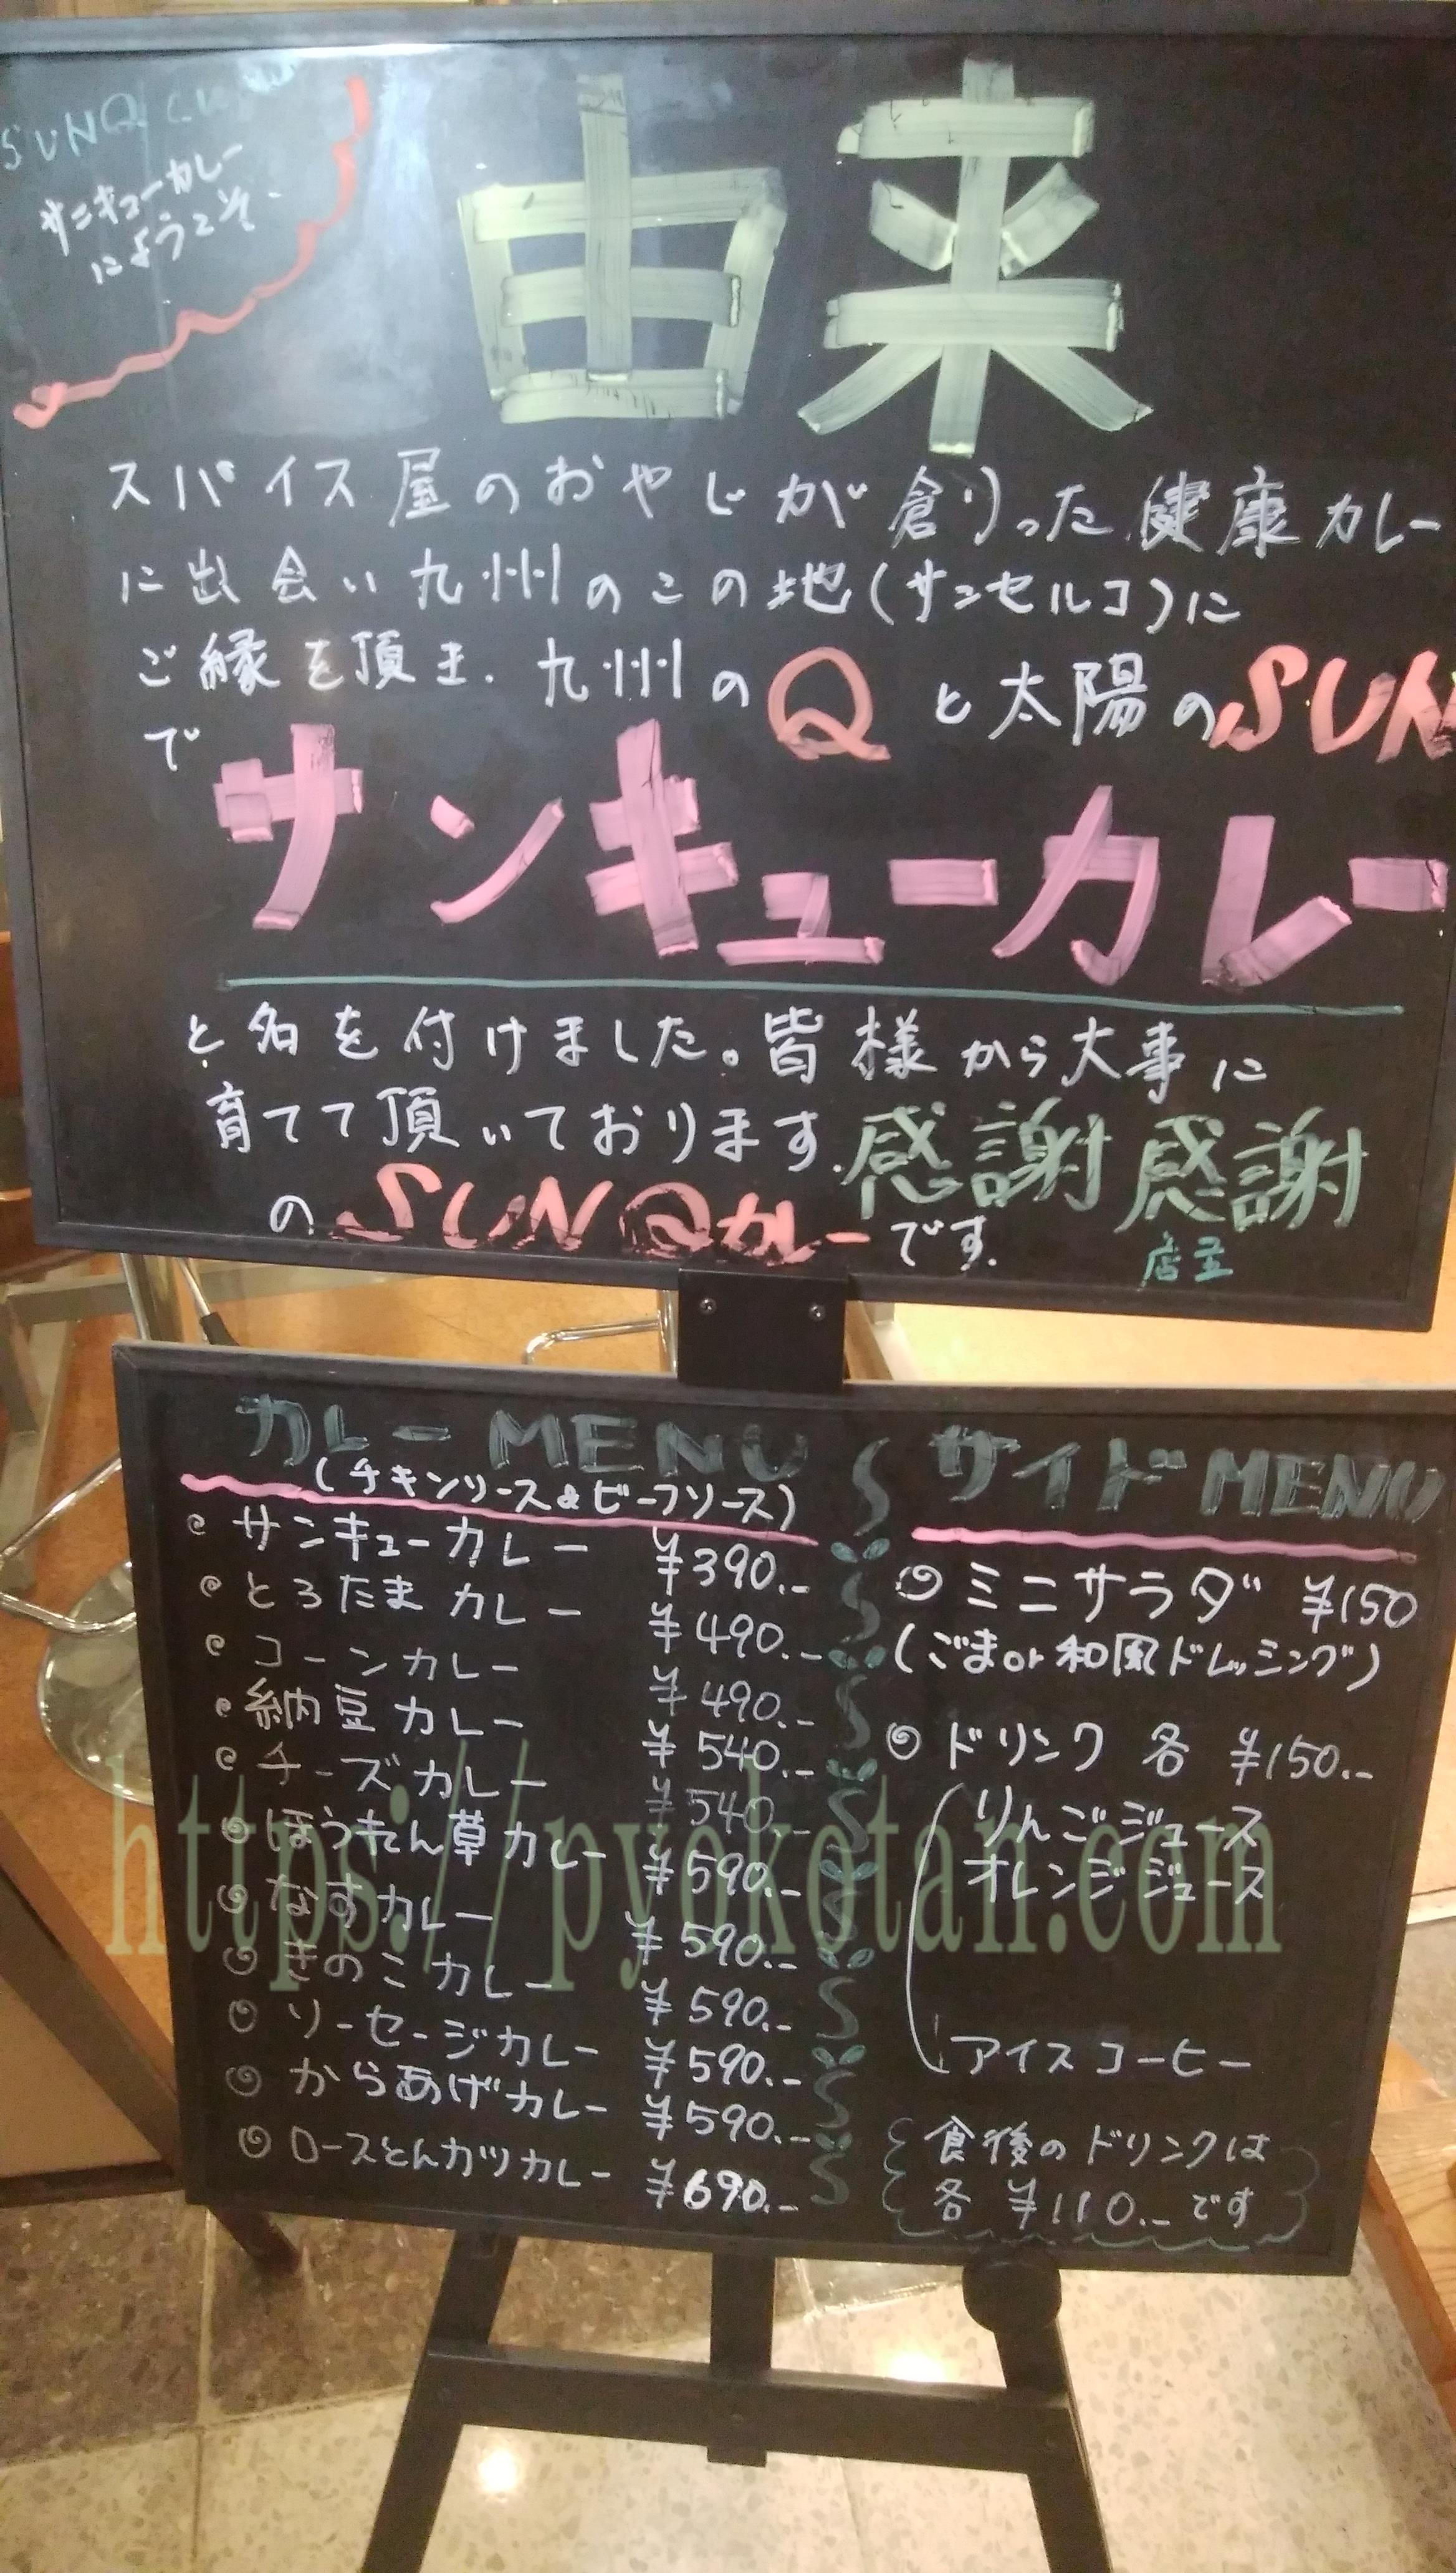 SUNQ
サンキューカレー
にようこそ
由来
スパイス屋のおやじが創った健康カレー
に出会い九州のこの地(サンセルコ)に
ご縁を頂き.九州のQと太陽のSUN
で
サンキューカレー
と名を付けました。皆様から大事に
育てて頂いております.感謝感謝
のSUNQカレーです.
店主
カレーMENU
(チキンソース&ビーフソース)
サンキューカレー ¥390.-
とろたまカレー ¥490.-
コーンカレー ¥490.-
納豆カレー ¥540.-
チーズカレー ¥540.-
ほうれん草カレー ¥590.-
なすカレー ¥590.-
きのこカレー ¥590.-
ソーセージカレー ¥590.-
からあげカレー ¥590.-
ロースとんカツカレー ¥690.-
サイドMENU
ミニサラダ ¥150
(ごまor和風ドレッシング)
ドリンク 各 ¥150.-
りんごジュース
オレンジジュース
アイスコーヒー
食後のドリンクは
各 ¥110.-です
https://pyokotan.com